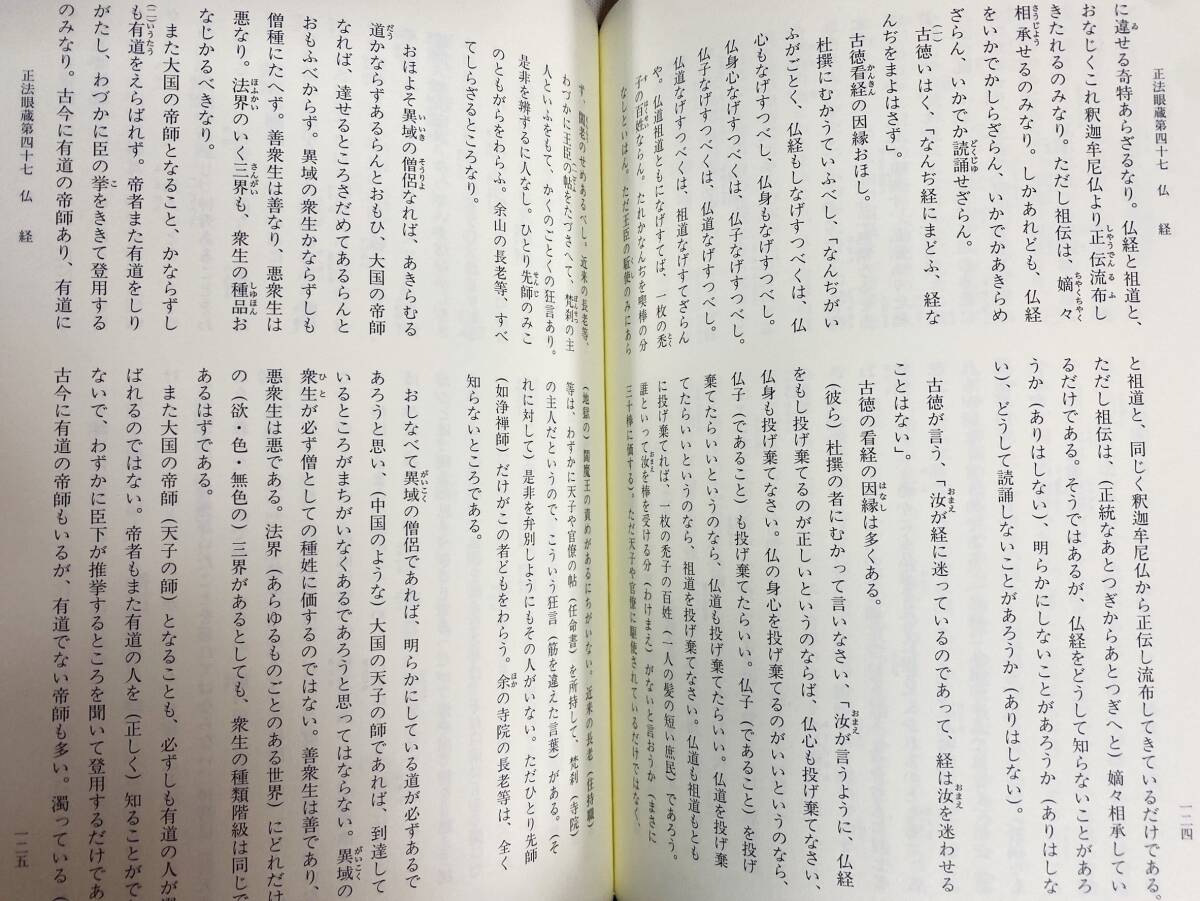 正法眼蔵第四十七　仏　経
一二四
に違せる奇特あらざるなり。仏経と祖道と、
おなじくこれ釈迦牟尼仏より正伝流布し
きたれるのみなり。ただし祖伝は、嫡々
相承せるのみなり。しかあれども、仏経
をいかでかしらざらん、いかでかあきらめ
ざらん、いかでか読誦せざらん。
(一)古徳いはく、「なんぢ経にまどふ、経な
んぢをまよはさず」。
古徳看経の因縁おほし。
杜撰にむかうていふべし、「なんぢがい
ふがごとく、仏経もしなげすつべくは、仏
心もなげすつべし、仏身もなげすつべし。
仏身心なげすつべくは、仏子なげすつべし。
仏子なげすつべくは、仏道なげすつべし。
仏道なげすつべくは、祖道なげすてざらん
や。仏道祖道ともになげすてば、一枚の禿
子の百姓ならん。たれかなんぢを喫棒の分
なしといはん。ただ王臣の駈使のみにあら
と祖道と、同じく釈迦牟尼仏から正伝し流布してきているだけである。
ただし祖伝は、（正統なあとつぎからあとつぎへと）嫡々相承してい
るだけである。そうではあるが、仏経をどうして知らないことがあろ
うか（ありはしない）、明らかにしないことがあろうか（ありはしな
い）、どうして読誦しないことがあろうか（ありはしない）。
古徳が言う、「汝が経に迷っているのであって、経は汝を迷わせる
ことはない」。
古徳の看経の因縁は多くある。
（彼ら）杜撰の者にむかって言いなさい、「汝が言うように、仏経
をもし投げ棄てるのが正しいというのならば、仏心も投げ棄てなさい、
仏身も投げ棄てなさい。仏の身心を投げ棄てるのがいいというのなら、
仏子（であること）も投げ棄てたらいい。仏子（であること）を投げ
棄てたらいいというのなら、仏道も投げ棄てたらいい。仏道を投げ棄
てたらいいというのなら、祖道を投げ棄てなさい。仏道も祖道もとも
に投げ棄てれば、一枚の禿子の百姓（一人の髪の短い庶民）であろう。
誰といって汝を棒を受ける分（わけまえ）がないと言おうか（まさに
三十棒に価する）。ただ天子や官僚に駆使されているだけではなく、
ず、閻老のせめあるべし。近来の長老等、
わづかに王臣の帖をたづさへて、梵刹の主
人といふをもて、かくのごとくの狂言あり。
是非を辨ずるに人なし。ひとり先師のみこ
のともがらをわらふ。余山の長老等、すべ
てしらざるところなり。
おほよそ異域の僧侶なれば、あきらむる
道かならずあるらんとおもひ、大国の帝師
なれば、達せるところさだめてあるらんと
おもふべからず。異域の衆生かならずしも
僧種にたへず。善衆生は善なり、悪衆生は
悪なり。法界のいく三界も、衆生の種品お
なじかるべきなり。
また大国の帝師となること、かならずし
(二)も有道をえらばれず。帝者また有道をしり
がたし、わづかに臣の挙をききて登用する
のみなり。古今に有道の帝師あり、有道に
（地獄の）閻魔王の責めがあるにちがいない。近来の長老（住持職）
等は、わずかに天子や官僚の帖（任命書）を所持して、梵刹（寺院）
の主人だというので、こういう狂言（筋を違えた言葉）がある。（そ
れに対して）是非を弁別しようにもその人がいない。ただひとり先師
（如浄禅師）だけがこの者どもをわらう。余の寺院の長老等は、全く
知らないところである。
おしなべて異域の僧侶であれば、明らかにしている道が必ずあるで
あろうと思い、（中国のような）大国の天子の師であれば、到達して
いるところがまちがいなくあるであろうと思ってはならない。異域の
衆生が必ず僧としての種姓に価するのではない。善衆生は善であり、
悪衆生は悪である。法界（あらゆるものごとのある世界）にどれだけ
の（欲・色・無色の）三界があるとしても、衆生の種類階級は同じで
あるはずである。
また大国の帝師（天子の師）となることも、必ずしも有道の人が
ばれるのではない。帝者もまた有道の人を（正しく）知ることがで
ないで、わずかに臣下が推挙するところを聞いて登用するだけであ
古今に有道の帝師もいるが、有道でない帝師も多い。濁っている（
正法眼蔵第四十七　仏　経
一二五